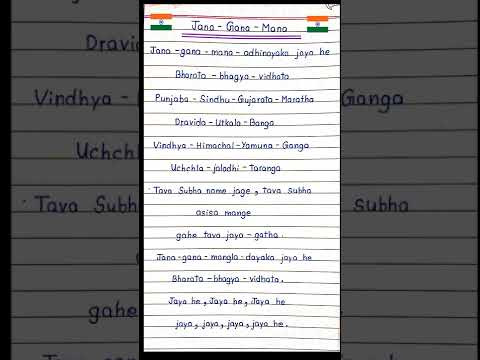 Jana - Gana - Mana
Jana - gana - mana - adhinayaka jaya he
Bharata - bhagya - vidhata
Punjaba - Sindhu - Gujarata - Maratha
Dravida - Utkala - Banga
Vindhya - Himachal - Yamuna - Ganga
Uchchla - jalodhi - Taranga
Tava Subha name jage, tava subha
asisa mange
gahe tava jaya - gatha.
Jana - gana - mangla - dayaka jaya he
Bharata - bhagya - vidhata.
Jaya he, Jaya he, Jaya he
jaya, jaya, jaya, jaya he.